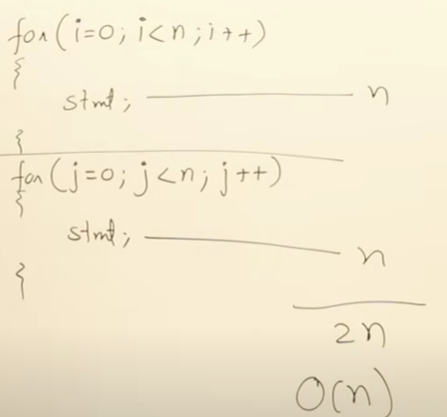 for(i=0; i<n; i++)
{
stmt; n
}
for(j=0; j<n; j++)
{
stmt; n
}
2n
O(n)